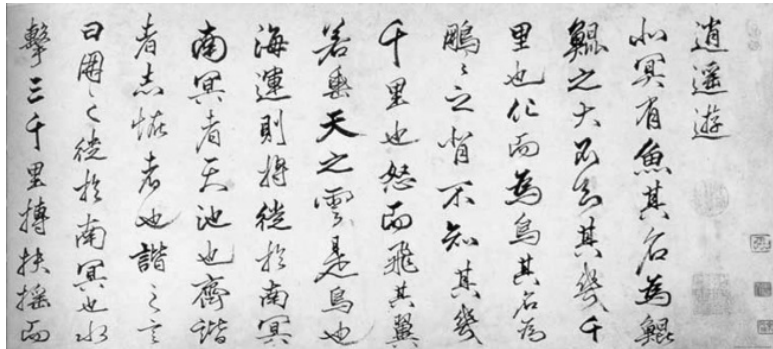 逍遥遊
北冥有魚其名為鯤
鯤之大不知其幾千
里也化而為鳥其名為
鵬々之背不知其幾
千里也怒而飛其翼
若垂天之雲是鳥也
海運則將徙於南冥
南冥者天池也齊諧
者志恠者也諧之言
曰鵬之徙於南冥也水
擊三千里摶扶摇而